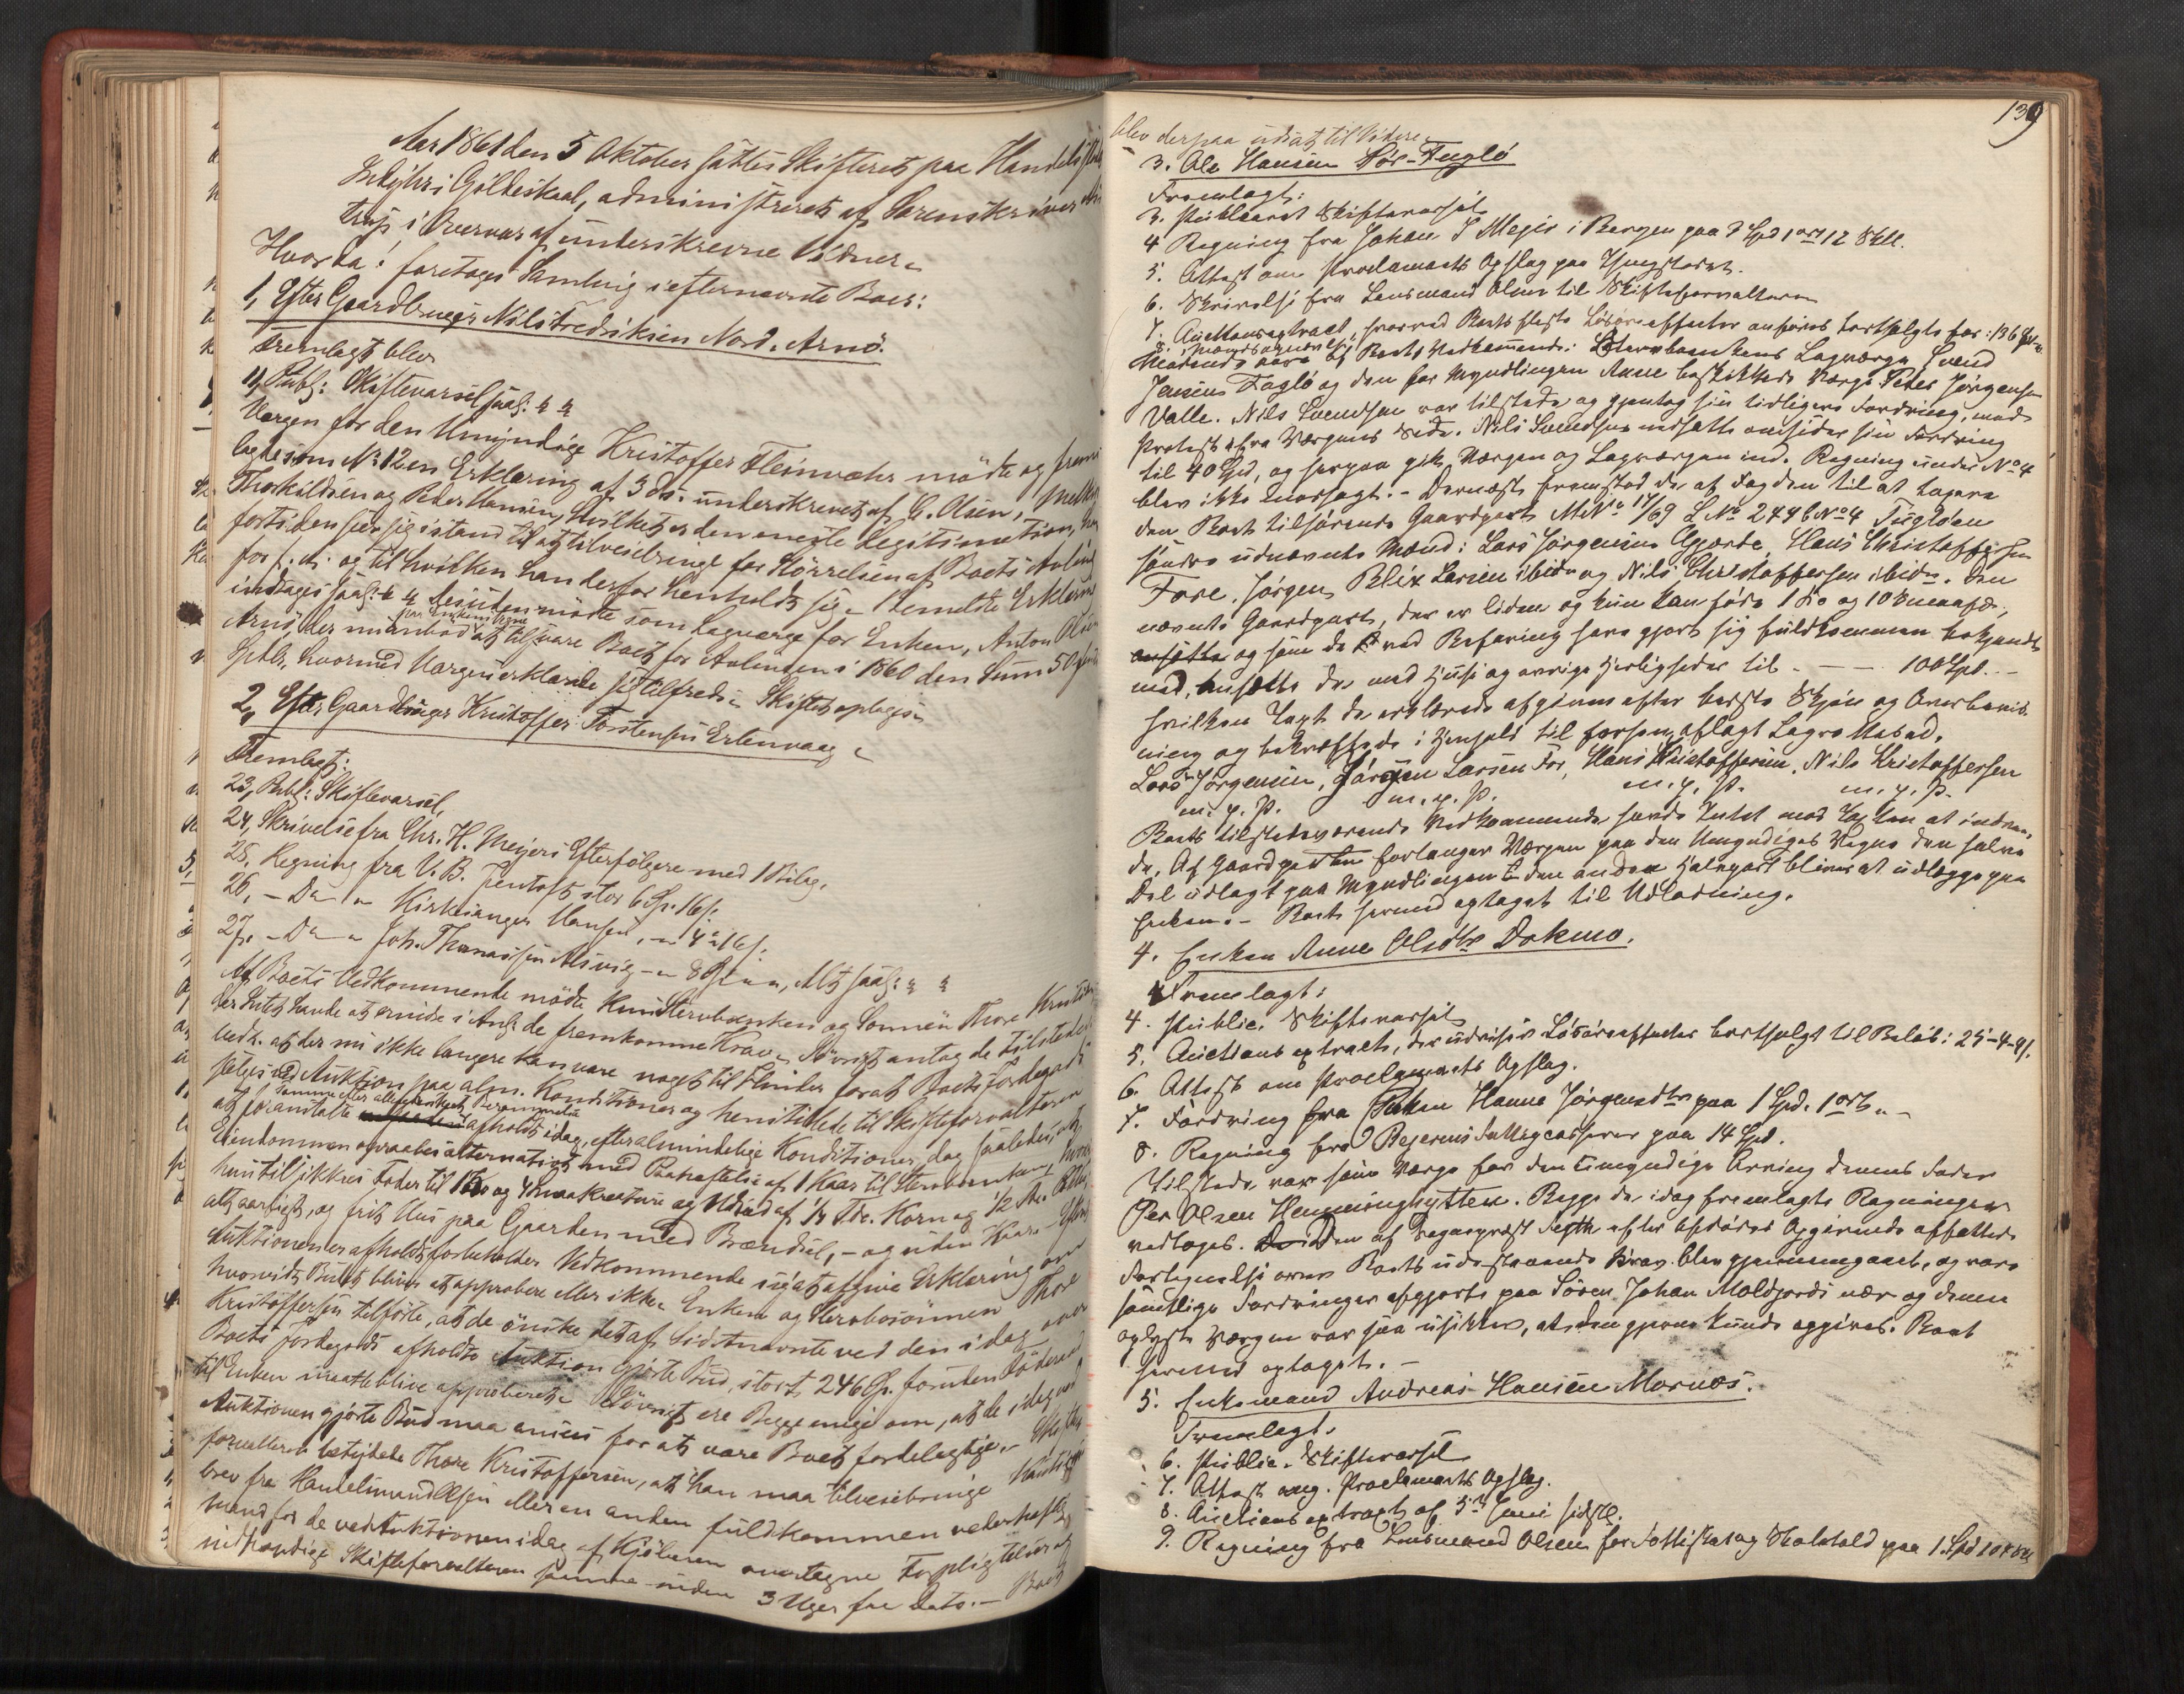 Aar 1861 den 5 Oktober sattes Skifteret paa Handelsstedet
Indyhr i Gildeskaal, administreret af Sorenskriver
trup i Overvær af underskrevne Vidner.
Hvor da: foretoges Samling i efternævnte Boer:
1, Efter Gaardbruger Nils Fredriksen Nord. Arnö.
Fremlagt blev
11, Publ: Skiftevarsel saal:
Værgen for den Umyndige Kristoffer Fleinvær mödte og frem
lagde som No 12 en Erklæring af 3 ds. underskrevet af C. Olsen,
Thorkildsen og Peder Hansen, hvilket er den eneste Legitimation, han
fortiden seer sig istand til at tilveiebringe for Störrelsen af Boets Avling
for f. A. og til hvilken han derfor henholdt sig. Bemeldte Erklæring
indtages saal: Desuden mödte som Lagværge for Enken, Anton Olsen
paa Enkens Vegne
Arnö, der nu anböd at tilsvare Boet for Avlingen i 1860 den Sum 50
Spdlr, hvormed Værgen erklærede sig tilfreds. Skiftet optoges.
2, Efter Gaardbruger Kristoffer Torstensen Ertenvaag
Fremlagt:
23, Publ: Skiftevarsel,
24, Skrivelse fra Chr. H. Meyers Efterfölgere med 1 Bilag,
25, Regning fra V. B. Jentoft stor 6 Sp. 16 s.
26, - Do " Kirkesanger Hansen, " 4 " 16 s.
27, - Do " Joh. Thomassen Alsvig - " 8 Sp " ", Alt saal:
Af Boets Vedkommende mödte kun Stervboenken og Sönnen Thore
der Intet havde at erindre i Anl: de fremkomne Krav. Iövrigt antog de Tilstedeværende
vedk. at der nu ikke længere kan være noget til Hinder for at Boets Jordegods
sælges ved Auktion paa alm. Konditioner og henstillede til Skifteforvalteren
at foranstalte afholdt idag, efter almindelige Konditioner, dog saaledes, at
Eiendommen opraabes alternativt med Paaheftelse af 1 Kaar til Stervboenken, hvorved
hun tilsikkres Foder til 1 Ko og 4 Smaakreature og Udsæd af 1/2 Tde. Korn og 1/2 Tde.
alt aarligt, og frit Hus paa Gaarden med Brændsel, - og uden Kaar. Efter
Auktionen er afholdt forbeholder Vedkommende sig at afgive Erklæring om
hvorvidt Budet blives at approbere eller ikke. Enken og Sterbosönnen Thore
Kristoffersen tilförte, at de önske det af Sidstnævnte ved den idag over
Boets Jordegods afholdte Auktion gjorte Bud, stort 246 Sp. foruden Föderaad
til Enken maatte blive approberet. Iövrigt ere Begge enige om, at de idag ved
Auktionen gjorte Bud maa ansees for at være Boet fordelagtige. Skifte
forvalteren betydede Thore Kristoffersen, at han maa tilveiebringe
brev fra Handelsmand Olsen eller en anden fuldkommen vederheftig
Mand for de ved Auktionen idag af Kjöberen overtagne Forpligtelser, og
indhændige Skifteforvalteren samme inden 3 Uger fra Dato. - Boet
139
blev derpaa udsat til Videre.
3. Ole Hansen Sör-Fuglö
Fremlagt:
3. Publiceret Skiftevarsel
4 Regning fra Johan D Mejer i Bergen paa 9 Spd 1 ort 12 Skll.
5. Attest om Proclamaets Opslag paa Thingstedet.
6. Skrivelse fra Lensmand Olsen til Skifteforvalteren
7. Auctionsextract, hvorved Boets fleste Lösöreeffecter anföres bortsolgte for: 136 Spd
Mödende vare af Boets Vedkommende: Stervboenkens Lagværge, Svend
Jensen Fuglö og den for Myndlingen Anne beskikkede Værge Peter Jörgensen
Valle. Nils Svendsen var tilstede og gjentog sin tidligere Fordring, mod
Protest fra Værgens Side. Nils Svendsen nedsatte omsider sin Fordring
til 40 Spd, og herpaa gik Værgen og Lagværgen ind. Regning under No 4
blev ikke modsagt. - Dernæst fremstod de af Fogden til at taxere
den Boet tilhörende Gaardpart M No 17/69 L No 244 b No 4 Fuglöen
söndre udnævnte Mænd: Lars Jörgensen, Hans Christoffersen
Fore, Jörgen Peliæ Larsen ibidm og Nils Christoffersen ibidm. Den
nævnte Gaardpart, der er liden og kun kan föde 1 Ko og 10 Smaafæ,
ansatte og som de ved Befaring have gjort sig fuldkommen bekjendt
med, ansatte de med Huse og övrige Herligheder til - - - 100 Spd. -
hvilken Taxt de erklærede afgiven efter bedste Skjön og Overbevis-
ning og bekræftede i Henhold til forhen aflagt Lagrettesed.
Lars Jörgensen, Jörgen Larsen For, Hans Kristoffersen, Nils Kristoffersen
m. p. P. m. p. P. m. p. P. m. p. P.
Boets tilstedeværende Vedkommende havde Intet mod Taxten at indven-
de. Af Gaardparten forlanger Værgen paa den Umyndiges Vegne den halve
Del udlagt paa Myndlingen & den anden Halvpart bliver at udlægge paa
Enken. - Boet hermed optaget til Udlodning.
4. Enken Anne Olsdtr Dokmo.
Fremlagt:
4. Public. Skiftevarsel
5. Auctionsextract, der udviser Lösöreeffecter bortsolgt til Belöb: 25-4-9 s.
6. Attest om Proclamaets Opslag.
7. Fordring fra Enken Hanna Jörgensdtr paa 1 Spd. 1 ort " -
8. Regning fra Bejerens Fattigcasserer paa 14 Spd.
Tilstede var som Værge for den umyndige Arving dennes Fader
Per Olsen Henningshytten. Begge de idag fremlagte Regninger
vedtoges. Den af Sogneprest efter Afdödes Opgivende affattede
Fortegnelse over Boets udestaaende Krav blev gjennemgaaet, og vare
samtlige Fordringer afgjorte paa Sören Johan Moldjords nær og denne
oplyste Værgen var saa usikker, at den gjerne kunde opgives. Boet
hermed optaget. -
5. Enkemand Andreas Hansen Mornæs.
Fremlagt.
6. Public. Skiftevarsel
7. Attest ang. Proclamaets Opslag.
8. Auctionsextract af 5te Juni sidstl.
9. Regning fra Lensmand Olsen for Fattigskat og Skolehold paa 1 Spd